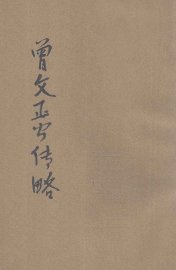 曾文正公传略